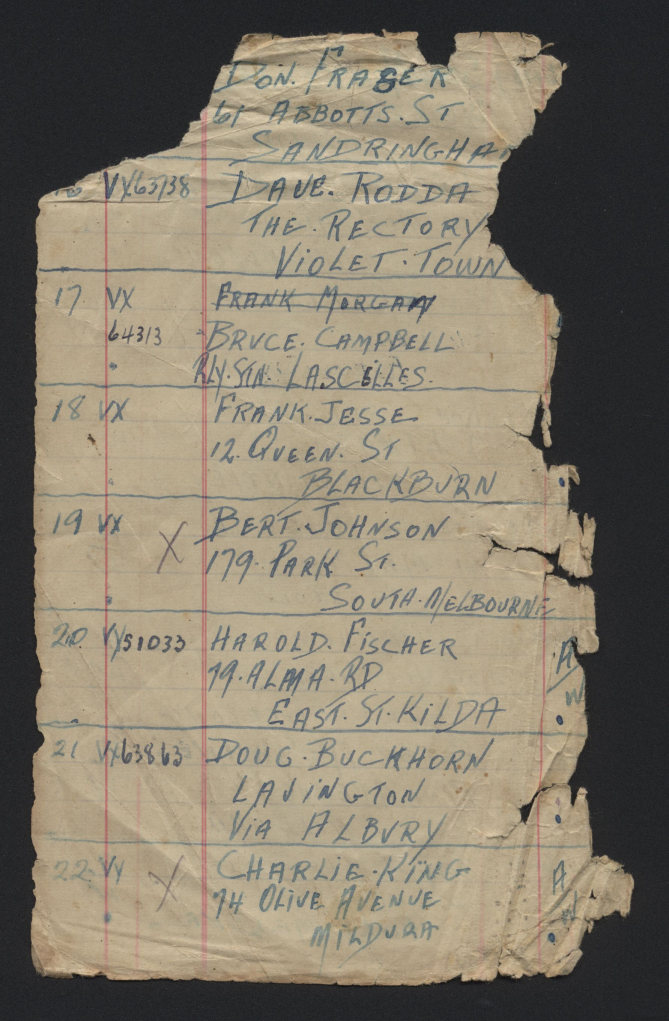 DON. FRASER
61 ABBOTTS. ST
SANDRINGHA
VX65738 DAVE. RODDA
THE. RECTORY
VIOLET. TOWN
17 VX FRANK MORGAN
64313 BRUCE. CAMPBELL
RLY. STN. LASCELLES.
18 VX FRANK. JESSE
12. QUEEN. ST
BLACKBURN
19 VX X BERT. JOHNSON
179. PARK ST.
SOUTH. MELBOURNE
20 VX51033 HAROLD. FISCHER A
79. ALMA. RD W
EAST. ST. KILDA
21 VX63863 DOUG. BUCKHORN
LAVINGTON
VIA ALBURY
22. VX X CHARLIE. KING A
74 OLIVE AVENUE W
MILDURA